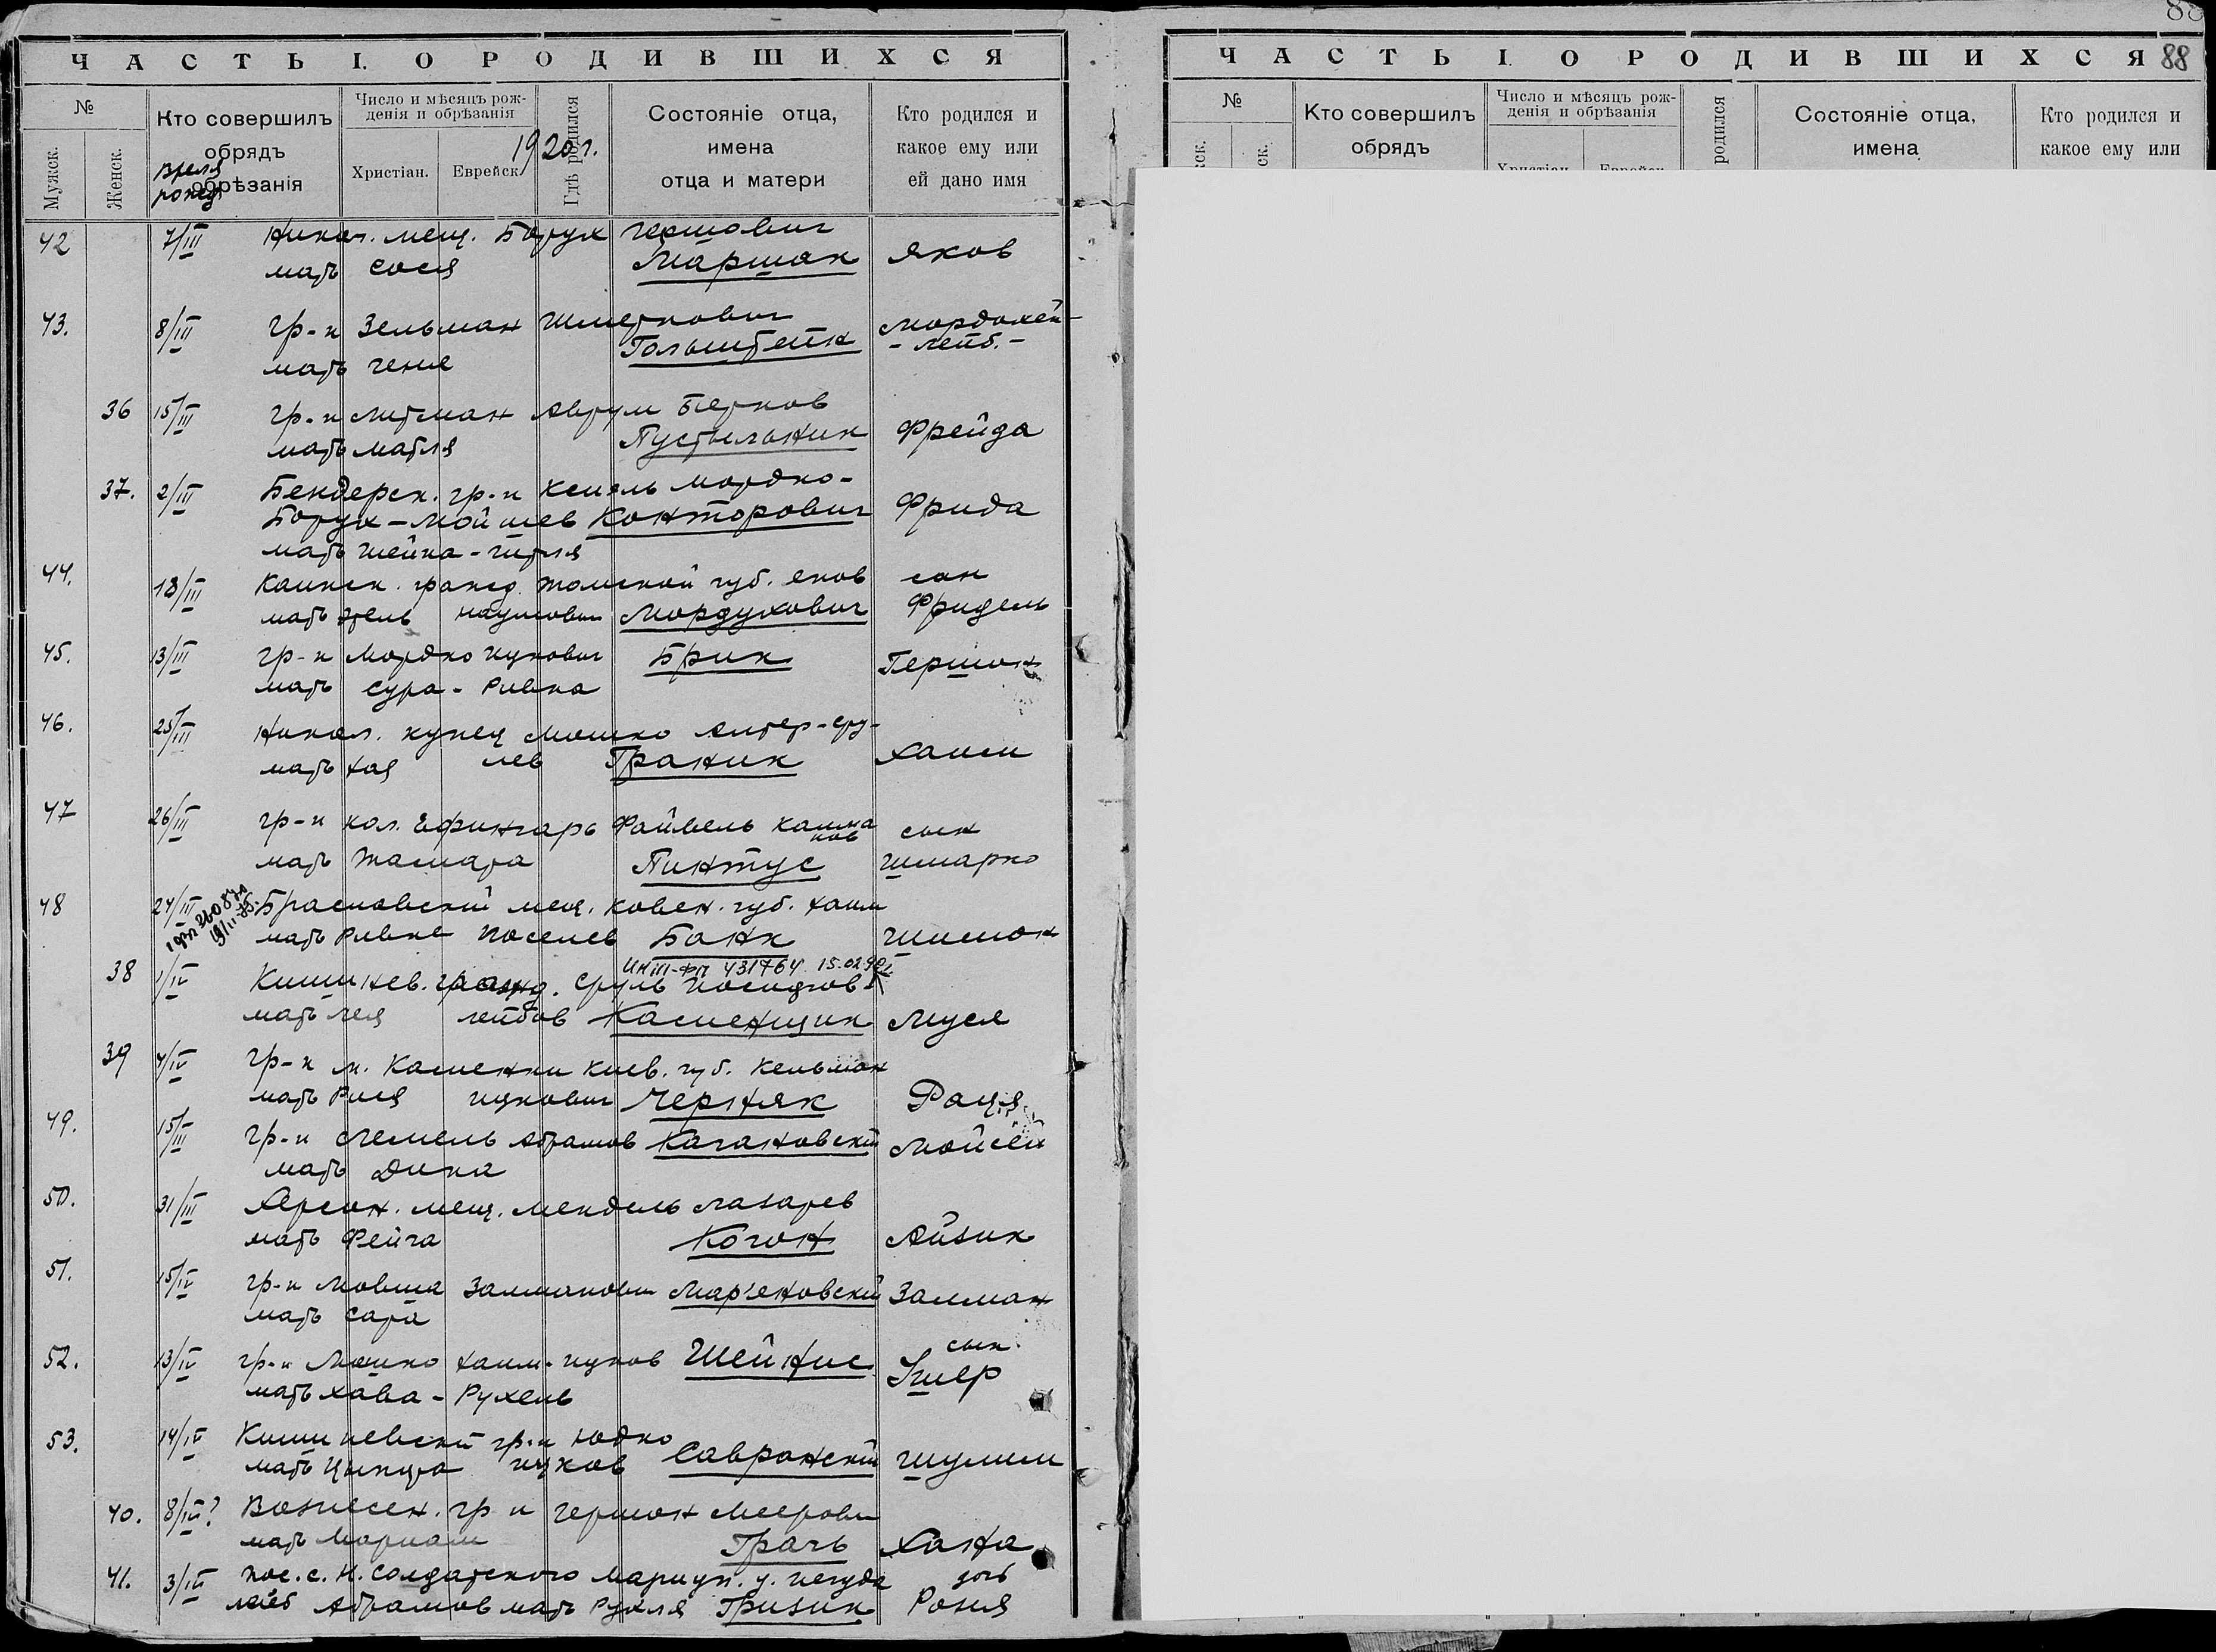 88
ЧАСТЬ I. О РОДИВШИХСЯ
№
Мужск.
Женск.
Кто совершилъ
обрядъ
обрѣзанія
время
рожд.
Число и мѣсяцъ рож-
денія и обрѣзанія
Христіан.
Еврейск.
1920 г.
Гдѣ родился
Состояніе отца,
имена
отца и матери
Кто родился и
какое ему или
ей дано имя
42 7/III Никол. мещ. Борух Гершович
мать Сося Маршак Яков
43. 8/III гр-н Зельман Шмеркович Мордохей-
Гольштейн -Лейб.-
мать Геня
36 15/III гр-н Литман Аврум Берков
мать Матля Пустыльник Фрейда
37. 2/III Бендерск. гр-н Хемель Мордко-
Борух-Мойшев Конторович Фрида
мать Шейна-Гитля
44. 13/III Каинск. гражд. Томской губ. Яков сын
мать Этель Наумович Мордухович Фридель
45. 13/III гр-н Мордко Ицкович Брик Гершон
мать Сура-Ривка
46. 25/III Никол. купец Мошко Алтер-Сру-
мать Хая лев Граник Хаим
47 26/III гр-н кол. Ефингарь Файвель Калма
нов сын
мать Тамара Пинтус Шмарко
48 24/III Браславский мещ. Ковен. губ. Хаим
мать Ривке Иоселев Банк Шимон
38 1/IV Кишинев. гражд. Сруль Иосифов
431764 15.02.90
мать Лея Лейбов Каменщик Муся
39 4/IV гр-н м. Каменки Киев. губ. Кельман
мать Рися Ицкович Черняк Рахя
49. 15/III гр-н Лемель Абрамов Кагановский Мойсей
мать Дина
50. 31/III Херсон. мещ. Мендель Лазарев
мать Фейга Когон Айзик
51. 15/IV гр-н Мовша Залманович Мар'яновский Залман
мать Сара
52. 13/IV гр-н Мошко Хаим-Ицков Шейнис сын
Ушер
мать Хава-Рухель
53. 14/IV Кишиневский гр-н Юдко
мать Ципра Ицков Савранский Шулим
40. 8/III? Вознесен. гр-н Гершон Меерович
мать Мариам Грачь Хана
41. 3/III пос. с. Н. Солдатского Мариуп. у. Иегуда дочь
Лейб Абрамов мать Рухля Гризик Розия
88
ЧАСТЬ I О РОДИВШИХСЯ
№
Кто совершилъ
обрядъ
Число и мѣсяцъ рож-
денія и обрѣзанія
родился
Состояніе отца,
имена
Кто родился и
какое ему или